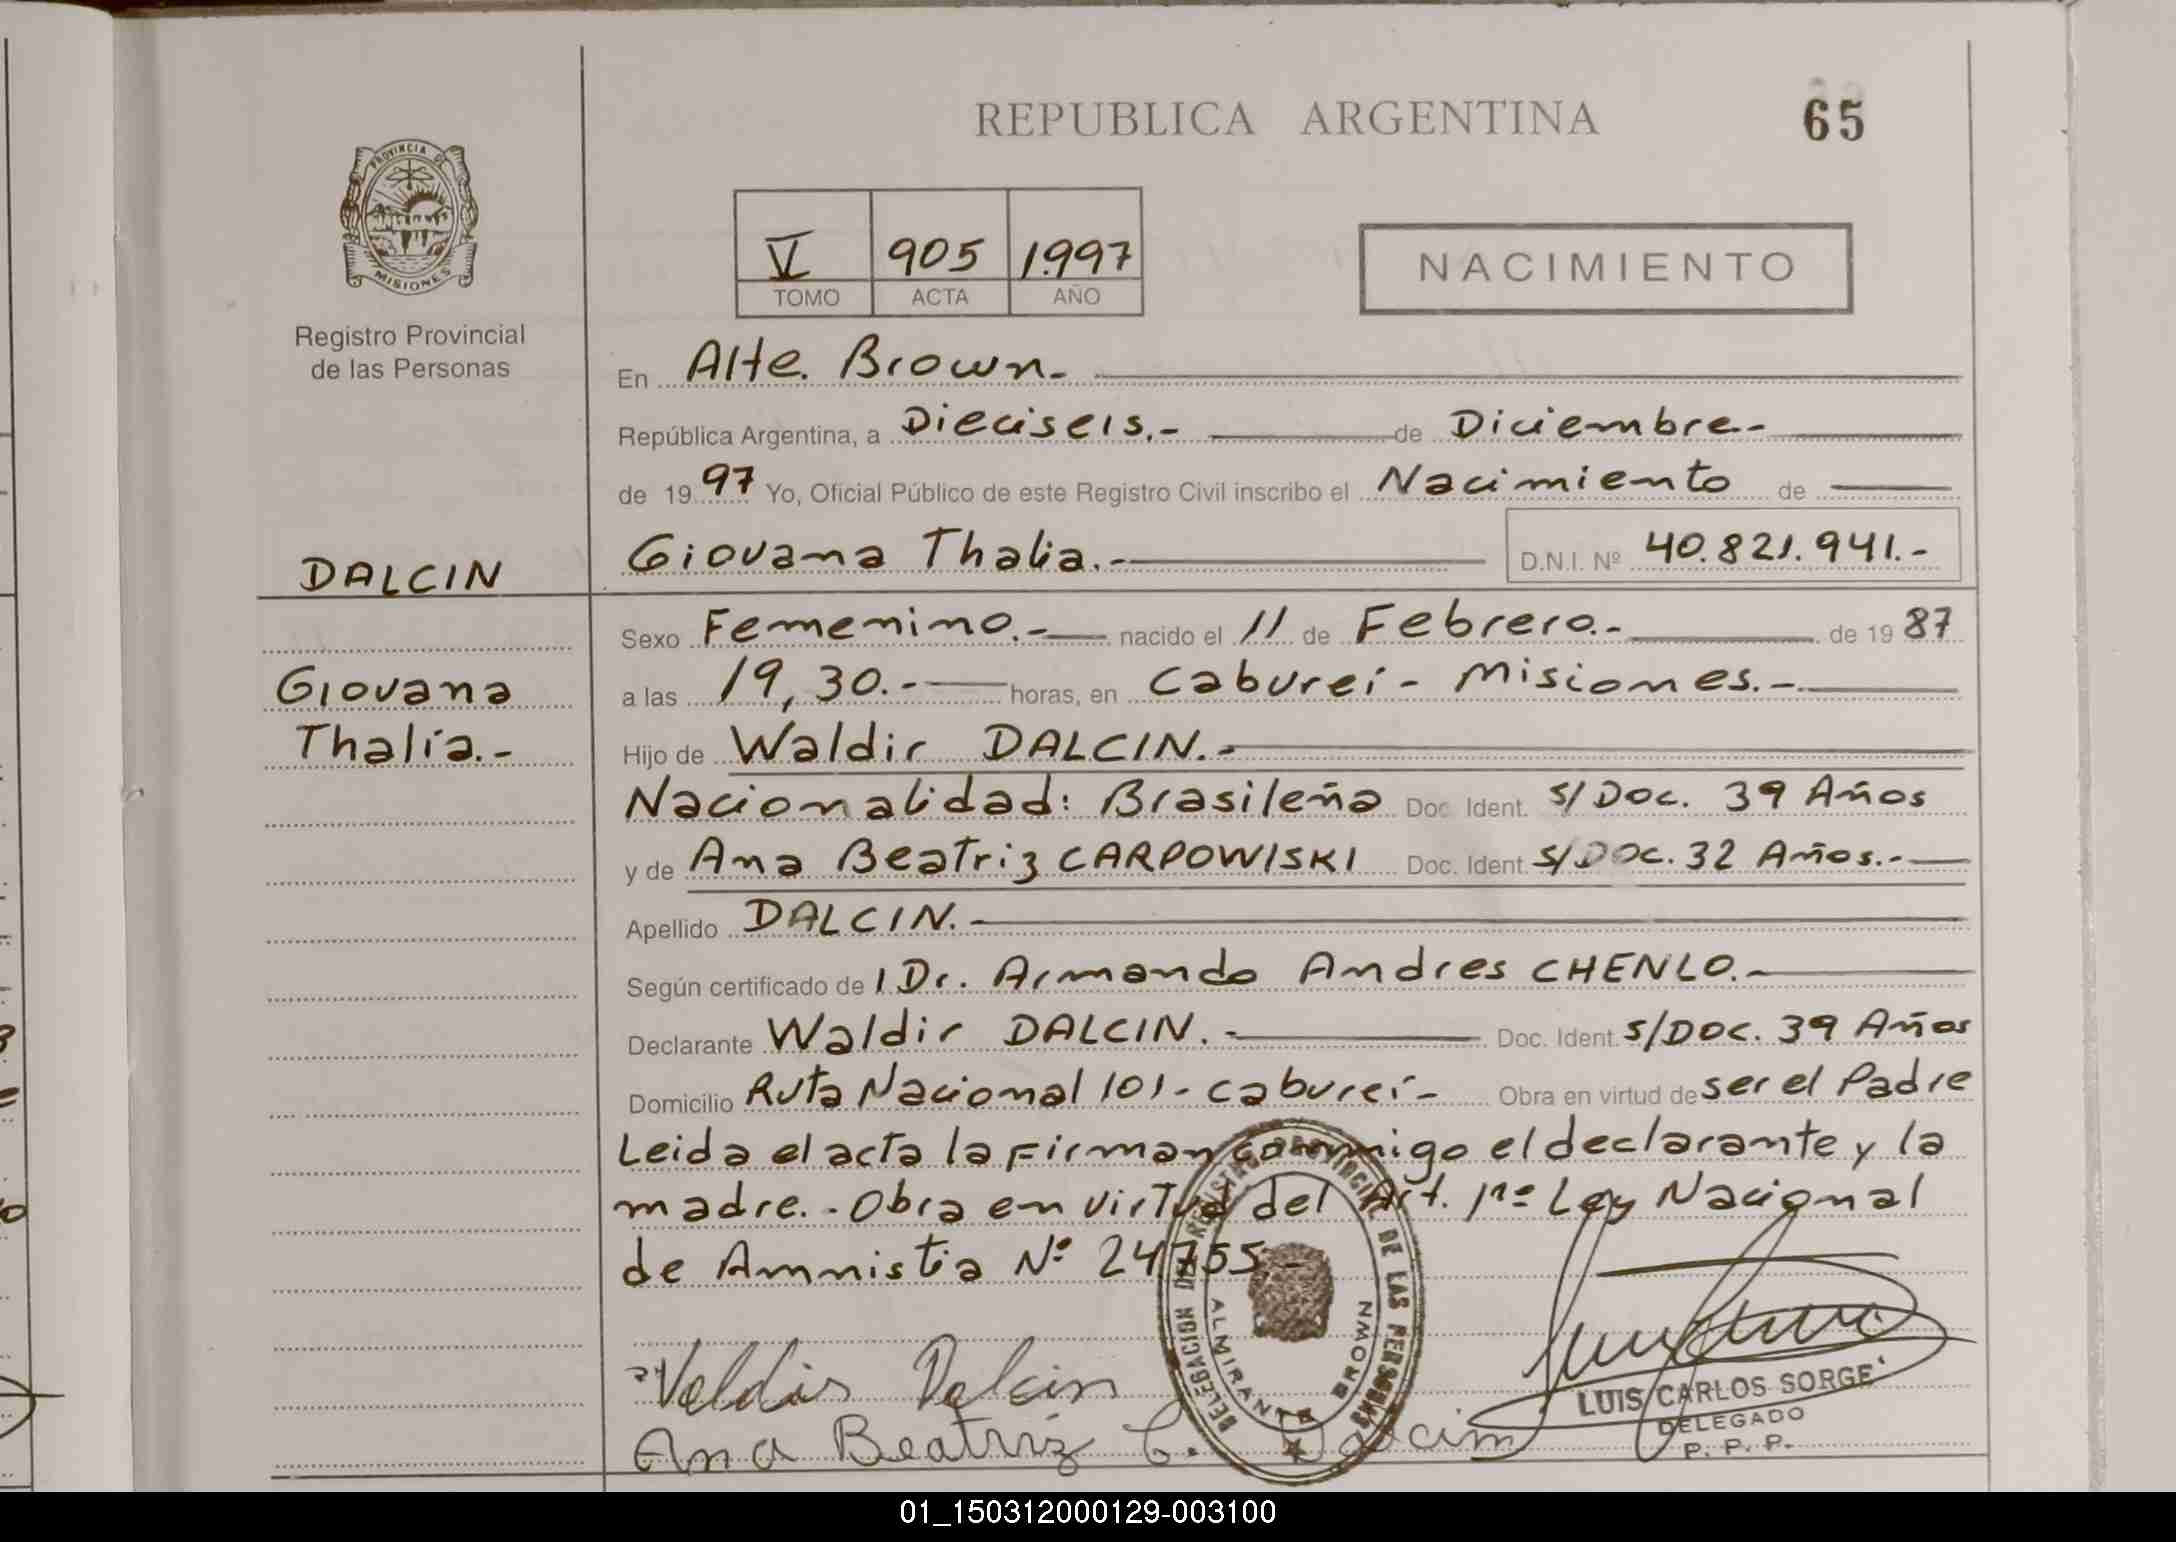 REPUBLICA ARGENTINA
65
PROVINCIA DE
MISIONES
Registro Provincial
de las Personas
V 905 1.997
TOMO ACTA AÑO
NACIMIENTO
En Alte. Brown.-
República Argentina, a Dieciseis.- de Diciembre.-
de 19 97 Yo, Oficial Público de este Registro Civil inscribo el Nacimiento de
DALCIN
Giovana Thalia.- D.N.I. Nº 40.821.941.-
Giovana
Thalía.-
Sexo Femenino.- nacido el 11 de Febrero.- de 19 87
a las 19,30.- horas, en Cabureí - Misiones.-
Hijo de Waldir DALCIN.-
Nacionalidad: Brasileña Doc. Ident. S/Doc. 39 Años
y de Ana Beatriz CARPOWISKI Doc. Ident. S/DOC. 32 Años.-
Apellido DALCIN.-
Según certificado de l Dr. Armando Andres CHENLO.-
Declarante Waldir DALCIN.- Doc. Ident. S/DOC. 39 Años
Domicilio Ruta Nacional 101 - Cabureí - Obra en virtud de ser el Padre
Leida el acta la Firman conmigo el declarante y la
madre.- Obra en virtud del Art. 1ro Ley Nacional
de Amnistia Nº 24755.-
DELEGACION DEL REGISTRO PROVINCIAL DE LAS PERSONAS
ALMIRANTE BROWN
Valdir Dalcin
Ana Beatriz C. Dalcin
LUIS CARLOS SORGE
DELEGADO
P. P. P.
01_150312000129-003100